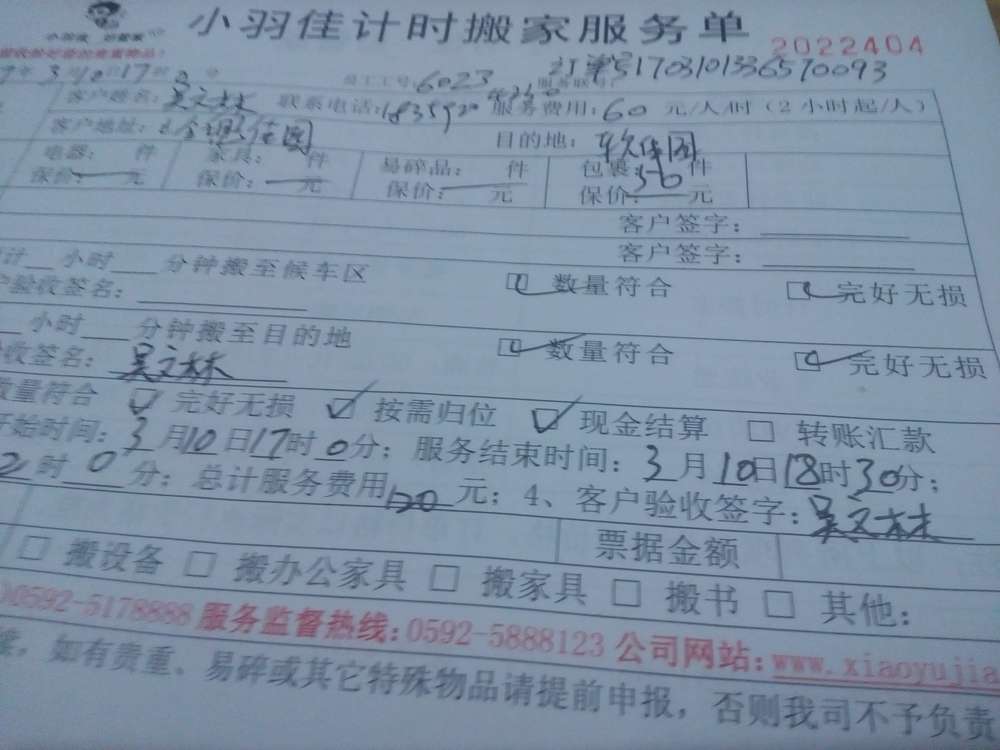 小羽佳计时搬家服务单
2022404
订单号170310133657 0093
7年3月10日17时
员工工号:6023
客户姓名:吴文林 联系电话: 服务费用:60元/人/时(2小时起/人)
客户地址: 目的地:
电器: 件 家具: 件 易碎品: 件 包裹: 件
保价: 元 保价: 元 保价: 元 保价: 元
客户签字:
客户签字:
小时 分钟搬至候车区 数量符合 完好无损
验收签名:
小时 分钟搬至目的地 数量符合 完好无损
收签名:吴文林
数量符合 完好无损 按需归位 现金结算 转账汇款
开始时间:3月10日17时0分;服务结束时间:3月10日18时30分;
2时0分;总计服务费用120元;4、客户验收签字:吴文林
票据金额
搬设备 搬办公家具 搬家具 搬书 其他:
0592-5178888服务监督热线:0592-5888123公司网站:www.xiaoyujia
如有贵重、易碎或其它特殊物品请提前申报,否则我司不予负责